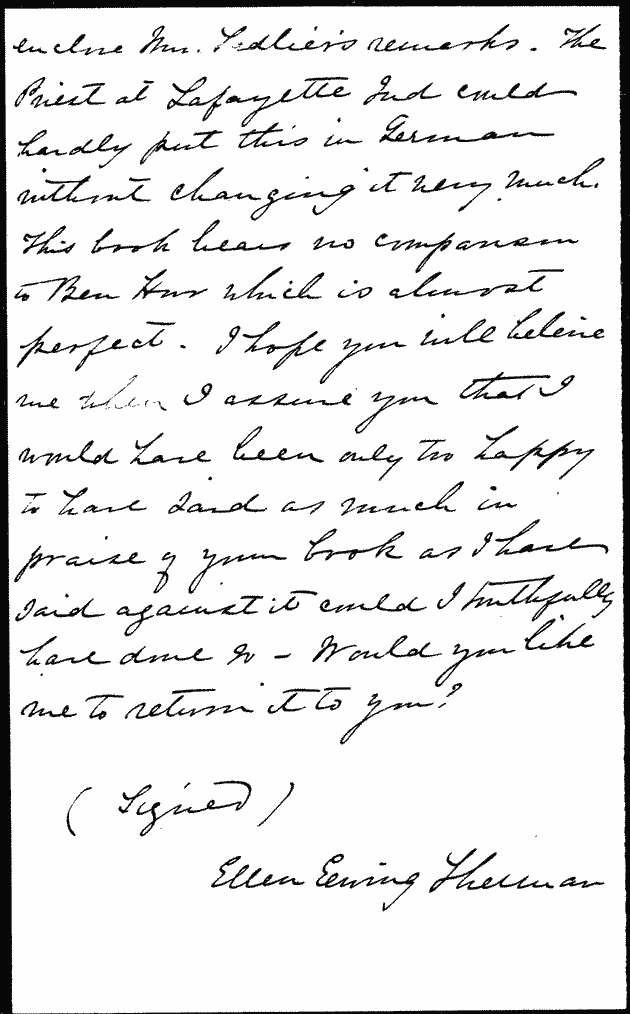 enclose Mrs. Sadlier's remarks. The
Priest at Lafayette Ind could
hardly put this in German
without changing it very much.
This book bears no comparison
to Ben Hur which is almost
perfect. I hope you will believe
me when I assure you that I
would have been only too happy
to have said as much in
praise of your book as I have
said against it could I truthfully
have done so - Would you like
me to return it to you?
( Signed )
Ellen Ewing Sherman